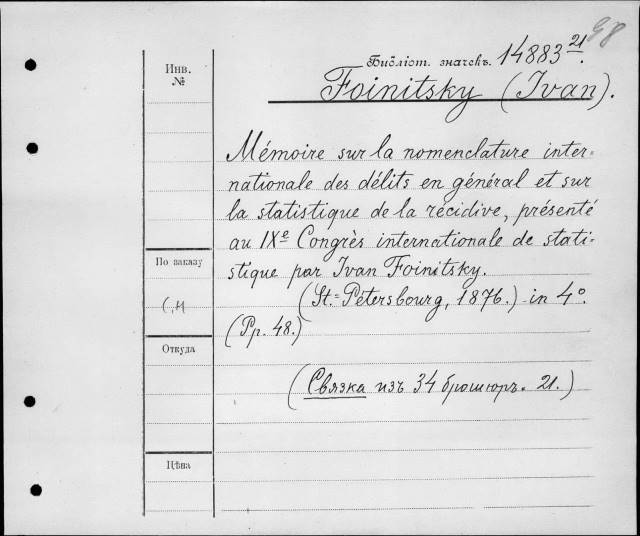 98
Библіот. значекъ. 14883 21.
Foinitsky (Ivan).
Инв.
№
Mémoire sur la nomenclature inter-
nationale des délits en général et sur
la statistique de la récidive, présenté
au IXe Congrès internationale de stati-
stique par Ivan Foinitsky.
(St.=Pétersbourg, 1876.) in 4°.
(Pp. 48.)
(Связка изъ 34 брошюръ. 21.)
По заказу
Откуда
Цѣна